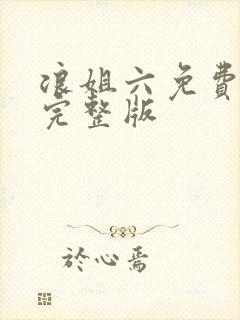 浪姐六免費
完整版
於心焉